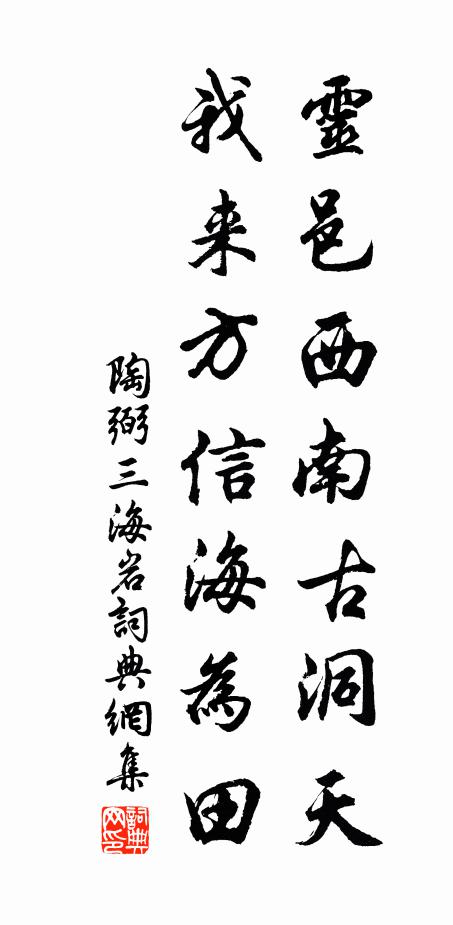 靈邑西南古洞天
我来方信海為田
陶弼三海岩詞典網集
詞典网印